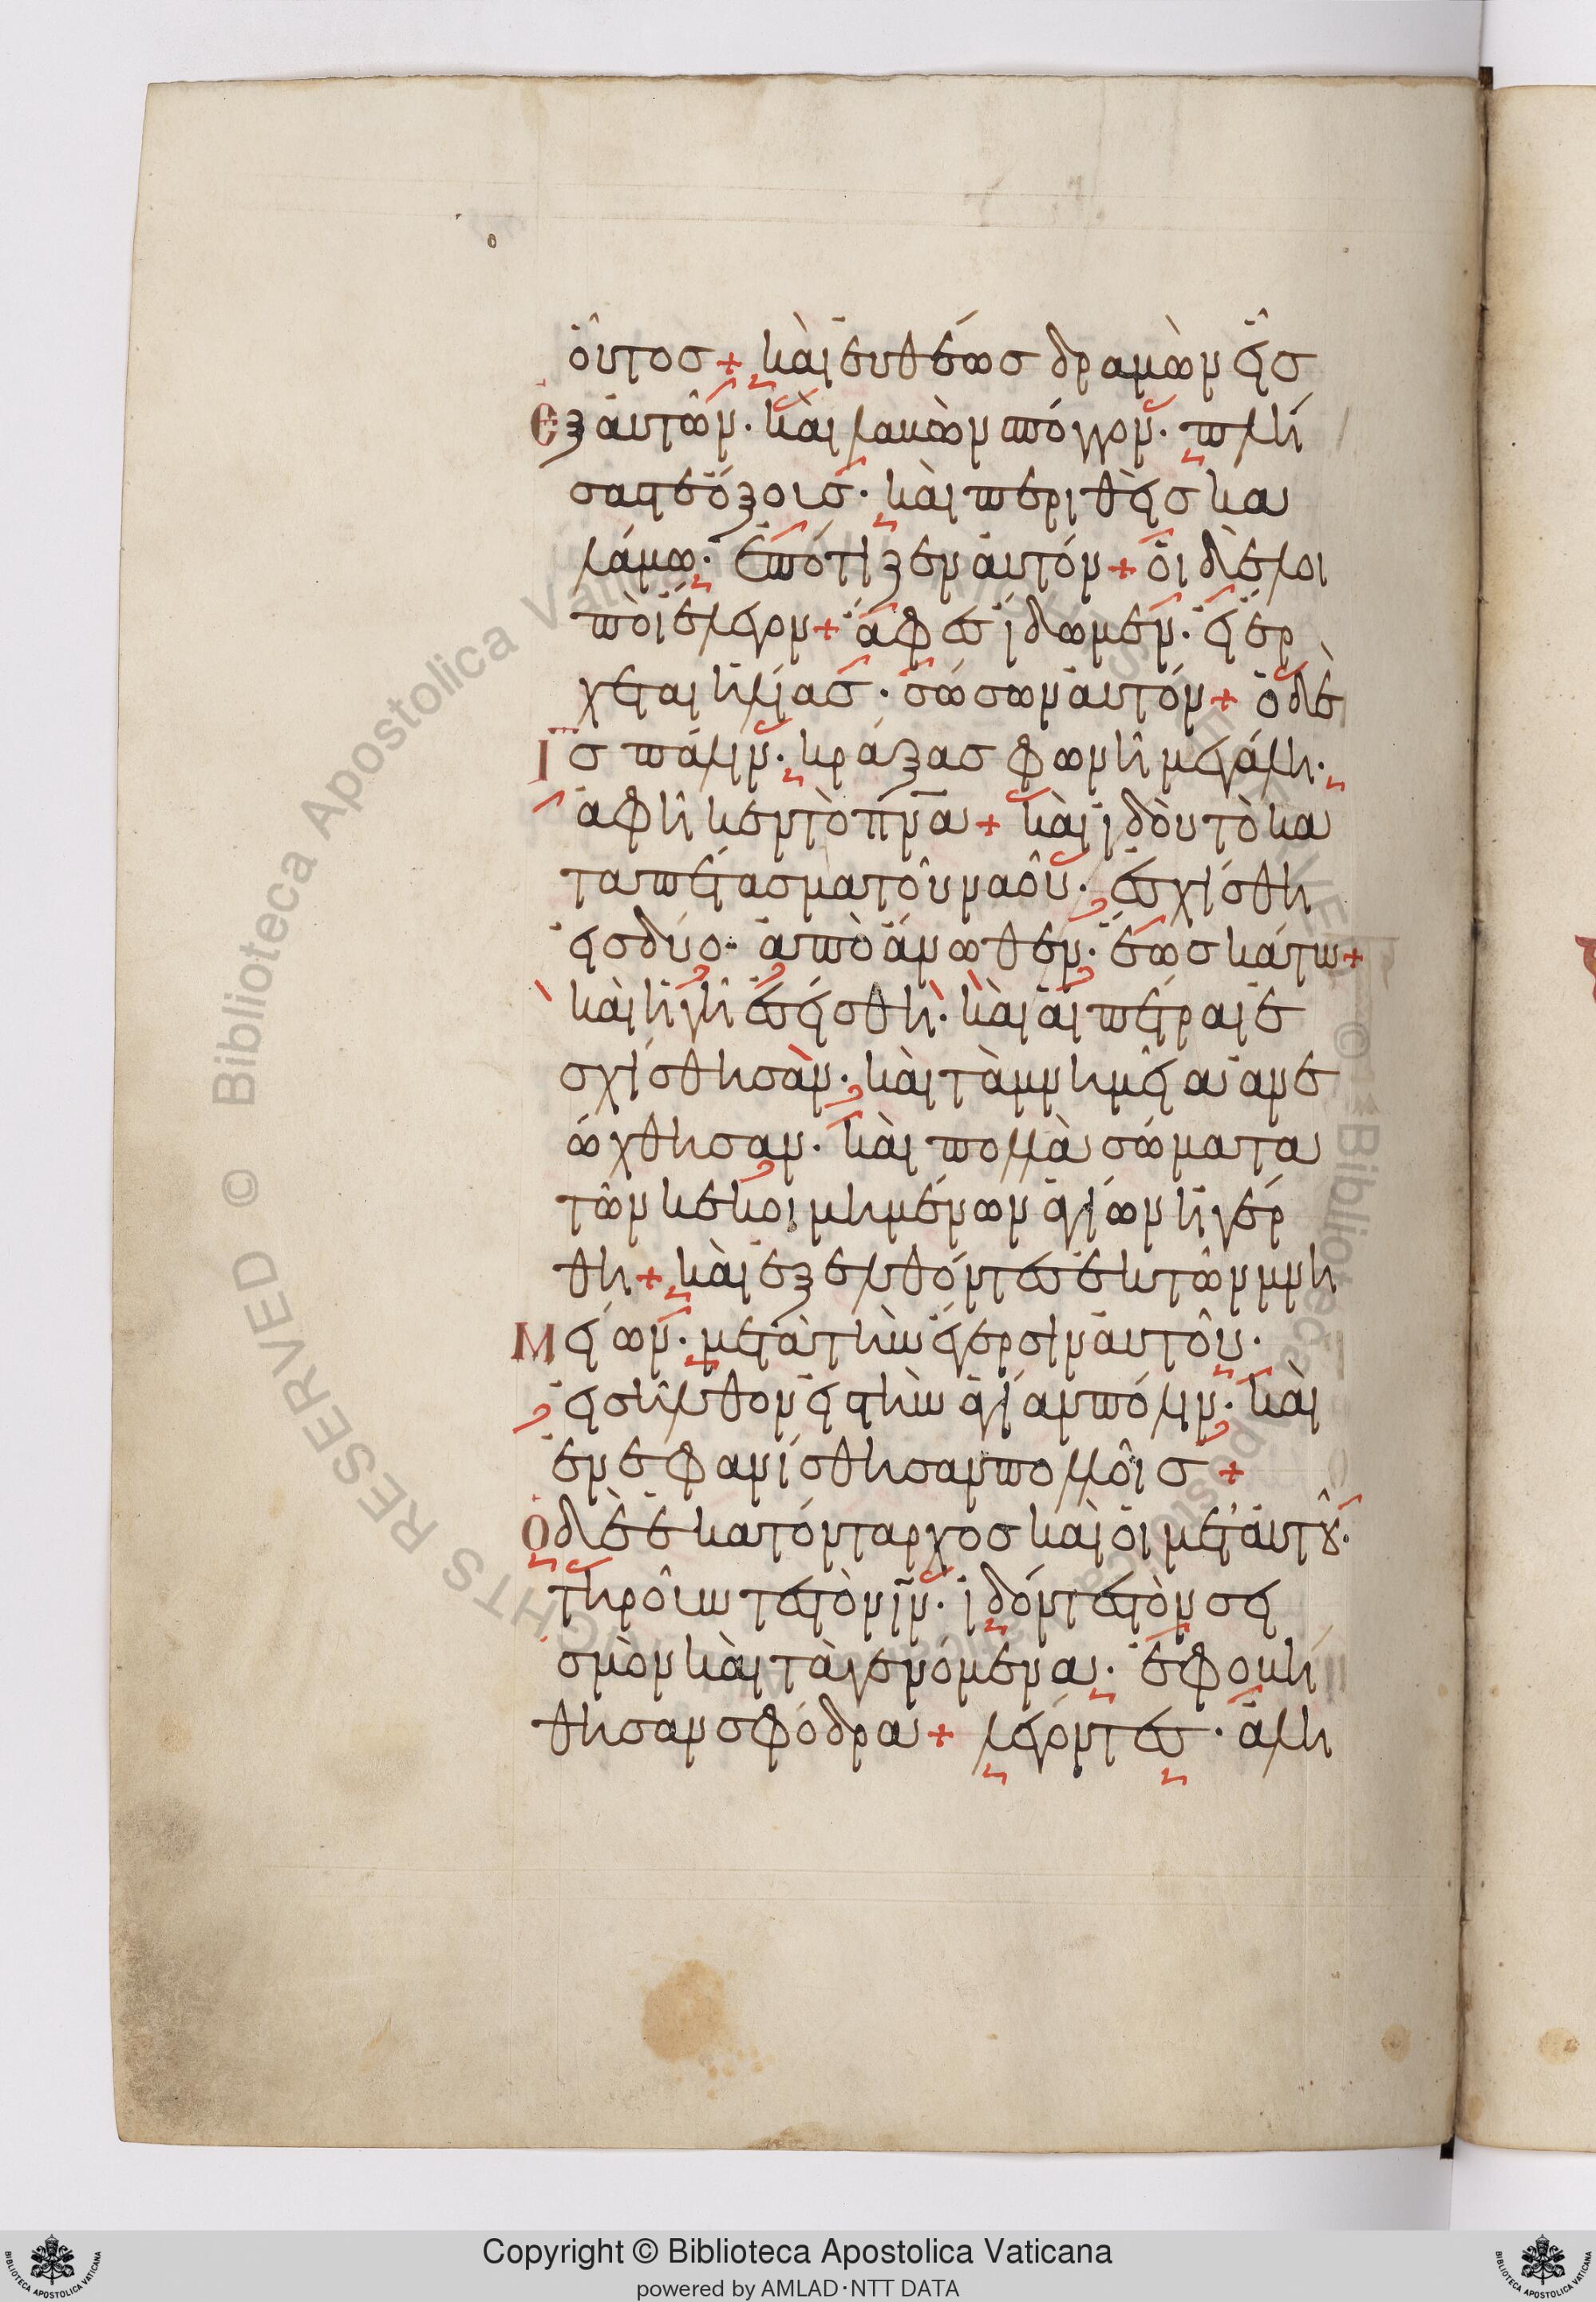 οὗτος + καὶ εὐθέως δραμὼν εἷς
ἐξ αὐτῶν · καὶ λαβὼν σπόγγον · πλή
σας τε ὄξους · καὶ περιθεὶς κα
λάμω · ἐπότιζεν αὐτόν + οἱ δὲ λοι
ποὶ ἔλεγον + ἄφες ἴδωμεν · εἰ ἔρ
χεται ἡλίας · σώσων αὐτόν + ὁ δὲ
ις πάλιν · κράξας φωνῇ μεγάλη ·
ἀφῆκεν τὸ πνα + καὶ ἰδοὺ τὸ κα
ταπέτασμα τοῦ ναοῦ · ἐσχίσθη
εἰς δύο · ἀπὸ ἄνωθεν · ἕως κάτω +
καὶ ἡ γῆ ἐσείσθη · καὶ αἱ πέτραι ἐ
σχίσθησαν · καὶ τὰ μνημεῖα ἀνε
ώχθησαν · καὶ πολλὰ σώματα
τῶν κεκοιμημένων ἁγίων ἠγέρ
θη + καὶ ἐξελθόντες ἐκ τῶν μνη
μείων · μετὰ τὴν ἔγερσιν αὐτοῦ ·
εἰσῆλθον εἰς τὴν ἁγίαν πόλιν · καὶ
ἐνεφανίσθησαν πολλοῖς +
ὁ δὲ ἑκατόνταρχος καὶ οἱ μετ' αὐτοῦ ·
τηροῦντες τὸν ιν · ἰδόντες τὸν σει
σμὸν καὶ τὰ γενόμενα · ἐφοβή
θησαν σφόδρα + λέγοντες · ἀλη
Copyright © Biblioteca Apostolica Vaticana
powered by AMLAD·NTT DATA